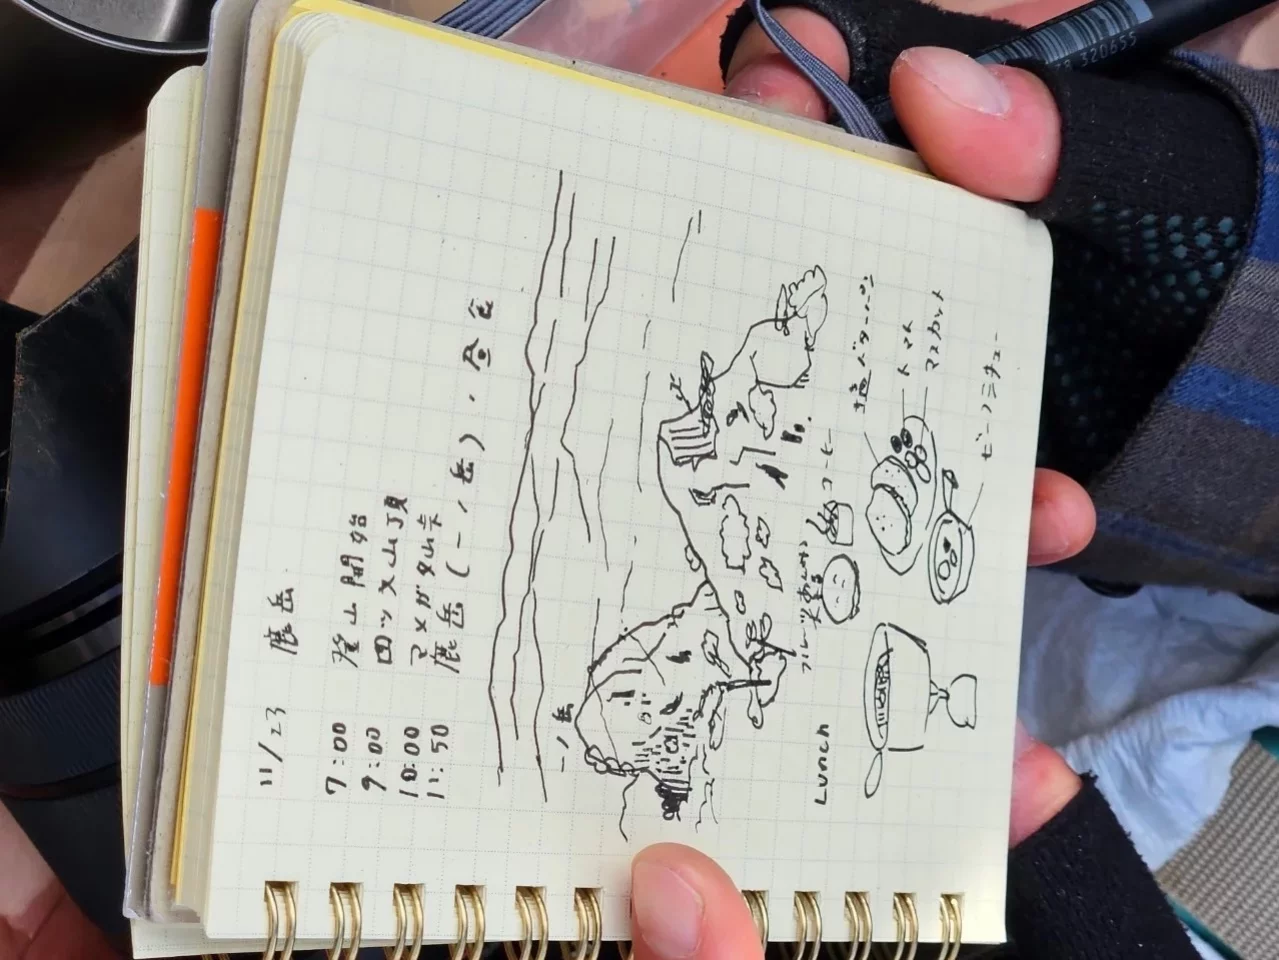 11/23 鹿岳
7:00 登山開始
9:00 四ツ又山頂
10:00 マメガタ峠
11:50 鹿岳(一ノ岳)、昼食
一ノ岳
Lunch
コーヒー
塩バターパン
トマト
マスカット
ビーフシチュー
320655